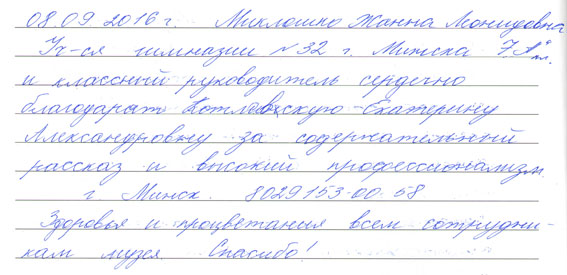 08.09.2016 г. Миклошко Жанна Леонидовна
Уч-ся гимназии №32 г. Минска 7 "А" кл.
и классный руководитель сердечно
благодарят Котлавскую Екатерину
Александровну за содержательный
рассказ и высокий профессионализм.
г. Минск. 8029153-00-58
Здоровья и процветания всем сотрудни-
кам музея. Спасибо!